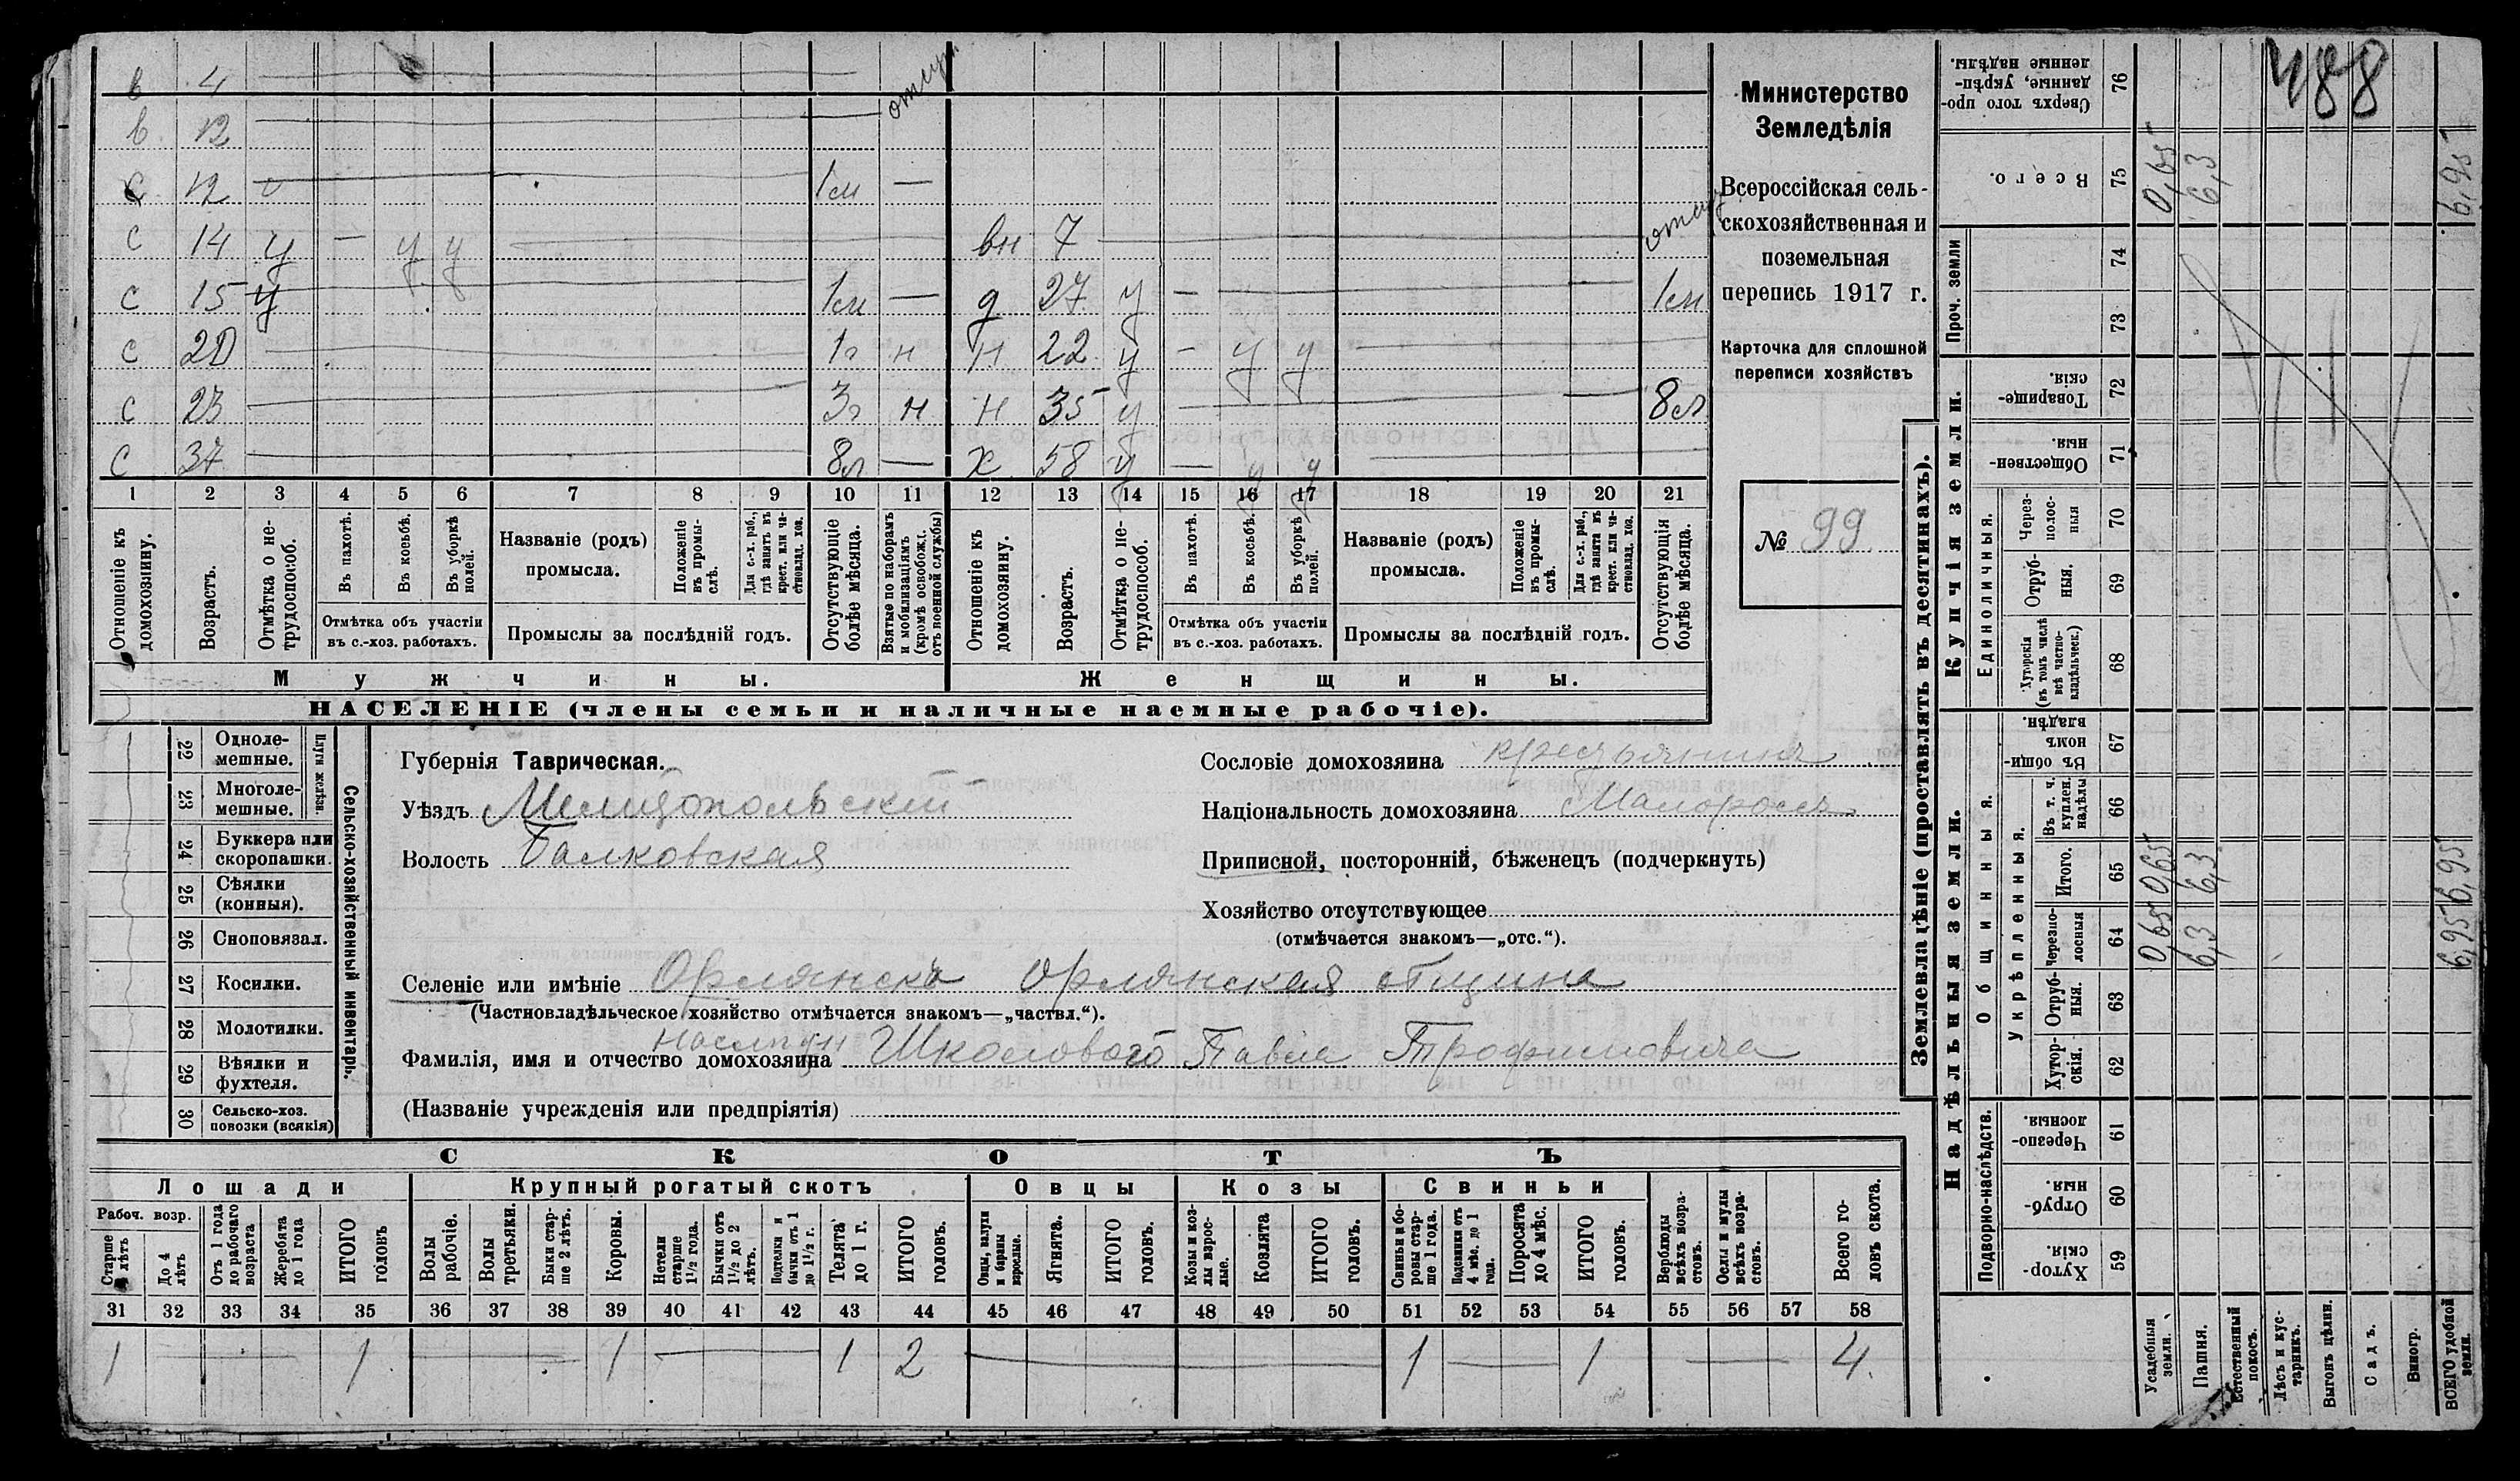 в 4
в 12 отсут
с 12 1м —
с 14 у — у у вн 7 отсут
с 15 у 1м — д 27 у — 1м
с 20 1г н н 22 у — у у
с 23 3г н н 35 у — 8л
с 37 8л — х 58 у — у у
1 2 3 4 5 6 7 8 9 10 11 12 13 14 15 16 17 18 19 20 21
Отношеніе къ домохозяину.
Возрастъ.
Отмѣтка о нетрудоспособ.
Въ пахотѣ.
Въ косьбѣ.
Въ уборкѣ полей.
Отмѣтка объ участіи
въ с.-хоз. работахъ.
Названіе (родъ)
промысла.
Положеніе въ промыслѣ.
Для с.-х. раб., гдѣ занятъ въ крест. или частновлад. хоз.
Промыслы за послѣдній годъ.
Отсутствующіе болѣе мѣсяца.
Взятые по наборамъ и мобилизаціямъ (кромѣ освобожд. отъ военной службы)
Отношеніе къ домохозяину.
Возрастъ.
Отмѣтка о нетрудоспособ.
Въ пахотѣ.
Въ косьбѣ.
Въ уборкѣ полей.
Отмѣтка объ участіи
въ с.-хоз. работахъ.
Названіе (родъ)
промысла.
Положеніе въ промыслѣ.
Для с.-х. раб., гдѣ занята въ крест. или частновлад. хоз.
Промыслы за послѣдній годъ.
Отсутствующія болѣе мѣсяца.
Мужчины.
Женщины.
НАСЕЛЕНІЕ (члены семьи и наличные наемные рабочіе).
Министерство
Земледѣлія
Всероссійская сель-
скохозяйственная и
поземельная
перепись 1917 г.
Карточка для сплошной
переписи хозяйствъ
№ 99
22 Одноле-
мешные.
23 Многоле-
мешные.
Плуги желѣзн.
24 Буккера или
скоропашки.
25 Сѣялки
(конныя).
26 Сноповязал.
27 Косилки.
28 Молотилки.
29 Вѣялки и
фухтеля.
30 Сельско-хоз.
повозки (всякія)
Сельско-хозяйственный инвентарь.
Губернія Таврическая.
Уѣздъ Мелитопольскій
Волость Балковская
Сословіе домохозяина крестьянинъ
Національность домохозяина Малороссъ
Приписной, посторонній, бѣженецъ (подчеркнуть)
Хозяйство отсутствующее
(отмѣчается знакомъ—„отс.“).
Селеніе или имѣніе Орлянскъ Орлянская община
(Частновладѣльческое хозяйство отмѣчается знакомъ—„частвл.“).
Фамилія, имя и отчество домохозяина Школового Павла Трофимовича
(Названіе учрежденія или предпріятія)
СКОТЪ
Лошади
Крупный рогатый скотъ
Овцы
Козы
Свиньи
Рабоч. возр.
Старше 4 лѣтъ
До 4 лѣтъ
Отъ 1 года до рабочаго возраста
Жеребята до 1 года
ИТОГО головъ
Волы рабочіе.
Волы третьяки.
Быки старше 2 лѣтъ.
Коровы.
Нетели старше 1½ года.
Бычки отъ 1½ до 2 лѣтъ.
Подтелки и бычки отъ 1 до 1½ г.
Телята до 1 г.
ИТОГО головъ.
Овцы, валухи и бараны взрослые.
Ягнята.
ИТОГО головъ.
Козы и козлы взрослые.
Козлята
ИТОГО головъ.
Свиньи и боровы старше 1 года.
Подсвинки отъ 4 мѣс. до 1 года.
Поросята до 4 мѣс.
ИТОГО головъ.
Верблюды всѣхъ возрастовъ.
Ослы и мулы всѣхъ возрастовъ.
Всего головъ скота.
31 32 33 34 35 36 37 38 39 40 41 42 43 44 45 46 47 48 49 50 51 52 53 54 55 56 57 58
1 — 1 — 1 — 1 2 — 1 — 1 — 4.
488
Землевладѣніе (проставлять въ десятинахъ).
Надѣльныя земли.
Купчія земли.
Проч. земли
Подворно-наслѣдств.
Общинныя.
Укрѣпленныя.
Единоличныя.
Сверхъ того проданные, укрѣпленные надѣлы. 76
Всего. 75
74
73
Товарищескія. 72
Общественныя. 71
Черезполосныя 70
Отрубныя. 69
Хуторскія (въ томъ числѣ всѣ частновладѣльческ.) 68
Въ общинномъ владѣн. 67
Въ т. ч. куплен. надѣлы 66
Итого. 65
Черезполосныя 64
Отрубныя. 63
Хуторскія. 62
Черезполосныя. 61
Отрубныя. 60
Хуторскія. 59
Усадебныя земли. 0,65 0,65 0,65
Пашня. 6,3 6,3 6,3
Естественный покосъ.
Лѣсъ и кустарникъ.
Выгонъ цѣлин.
Садъ.
Виногр.
ВСЕГО удобной земли. 6,95 6,95 6,95